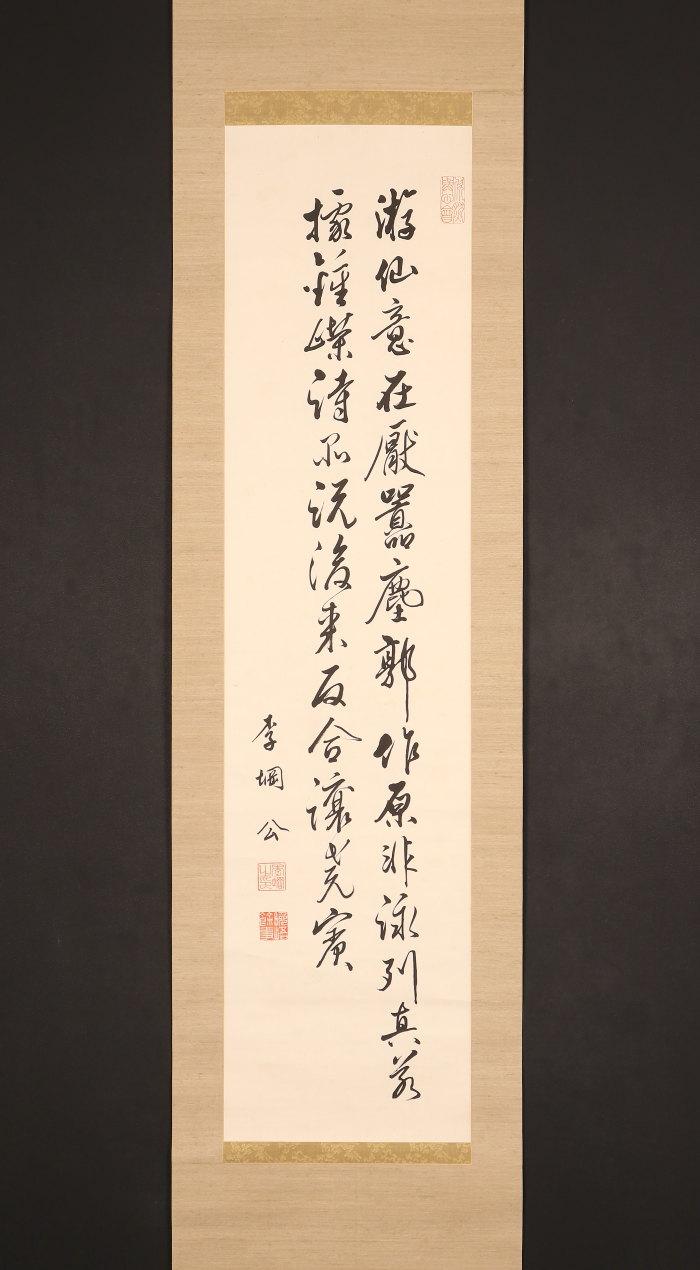 游仙意在厭囂塵郭作原非詠列真若
據鍾嶸詩品説後来反合讓堯賓
李堈公